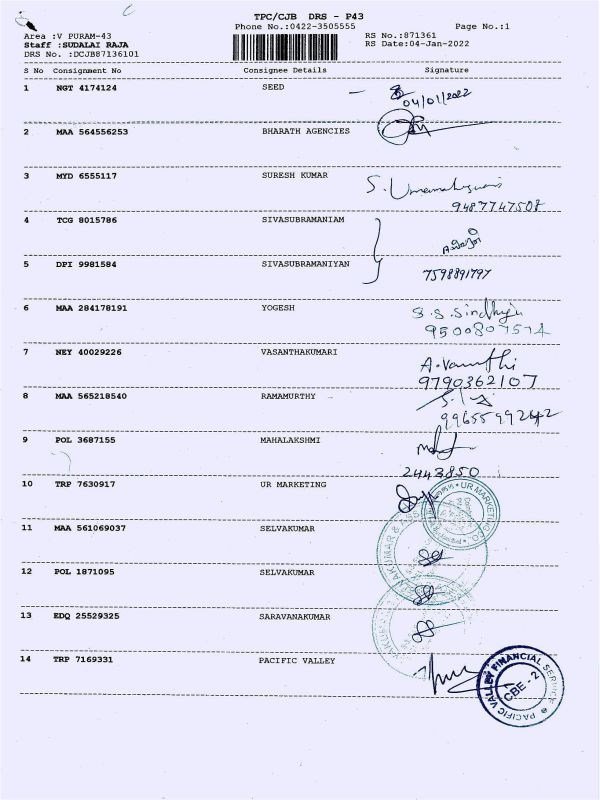 TPC/CJB DRS - P43
Phone No.:0422-3505555 Page No.:1
Area :V PURAM-43 RS No.:871361
Staff :SUDALAI RAJA RS Date:04-Jan-2022
DRS No. :DCJB87136101
S No Consignment No Consignee Details Signature
1 NGT 4174124 SEED
04/01/2022
2 MAA 564556253 BHARATH AGENCIES
3 MYD 6555117 SURESH KUMAR S. Umamaheswari
9487747508
4 TCG 8015786 SIVASUBRAMANIAM
5 DPI 9981584 SIVASUBRAMANIYAN 7598891797
6 MAA 284178191 YOGESH S.S.Sindhuja
9500807574
7 NEY 40029226 VASANTHAKUMARI A.Vasanthi
9790362107
8 MAA 565218540 RAMAMURTHY
9965599242
9 POL 3687155 MAHALAKSHMI
2443850
10 TRP 7630917 UR MARKETING
UR MARKETING CO.
11 MAA 561069037 SELVAKUMAR
12 POL 1871095 SELVAKUMAR
13 EDQ 25529325 SARAVANAKUMAR
14 TRP 7169331 PACIFIC VALLEY
PACIFIC VALLEY FINANCIAL SERVICE
CBE - 2